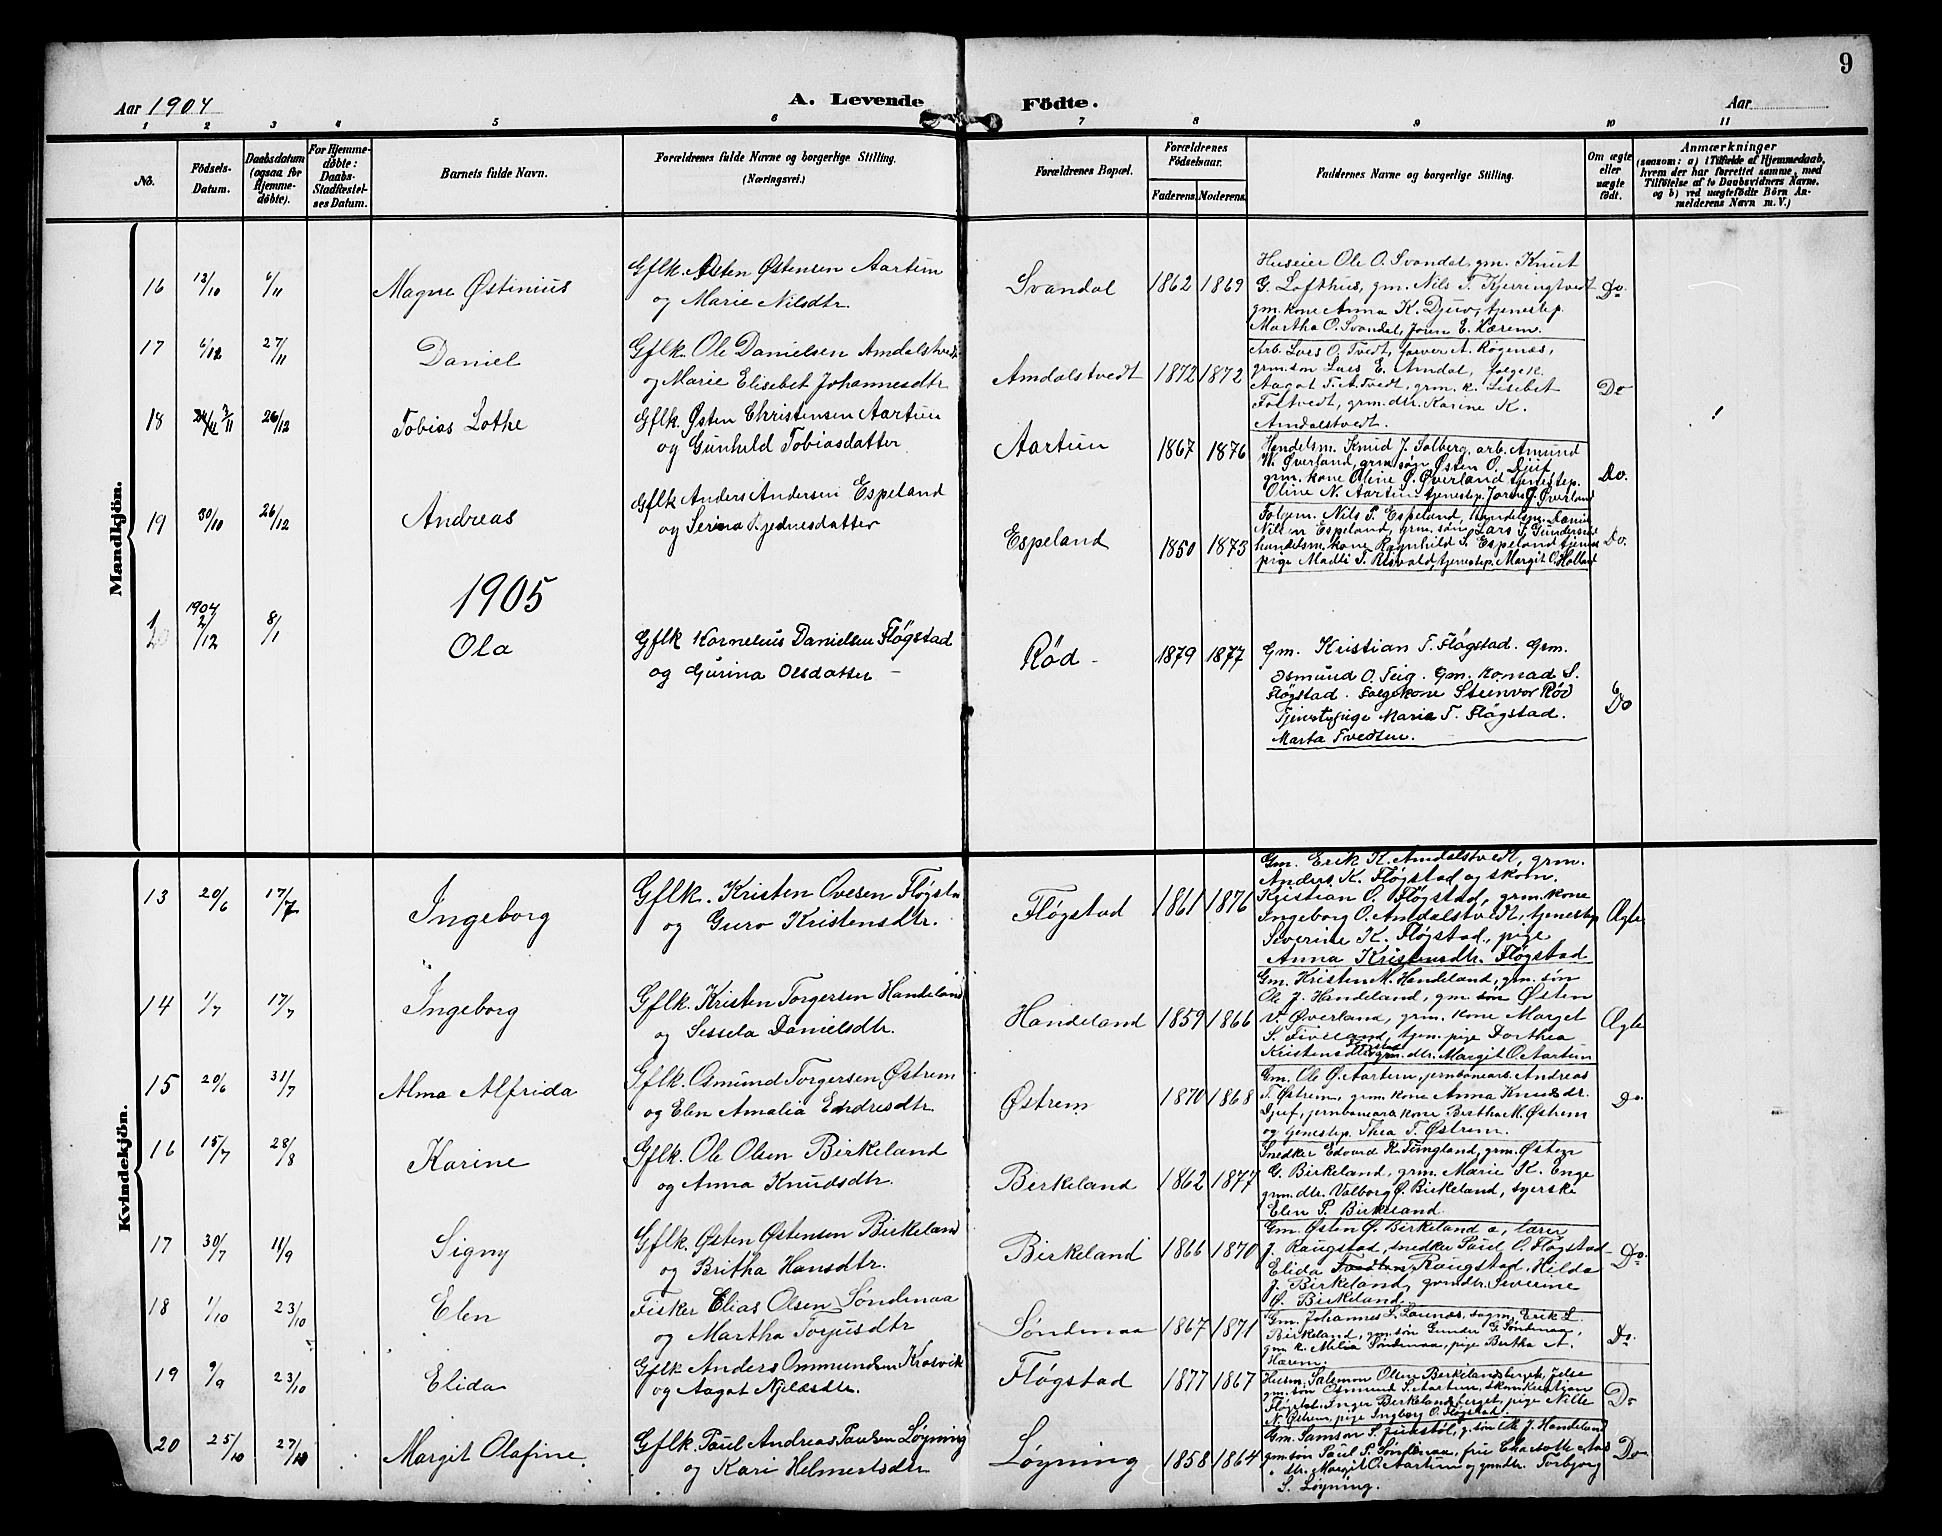 9
Aar 1904
A. Levende Födte.
Aar
1 2 3 4 5 6 7 8 9 10 11
No.
Födsels-Datum.
Daabsdatum (ogsaa for Hjemme-døbte).
For Hjemme-døbte: Daabs-Stadfæstel-ses Datum.
Barnets fulde Navn.
Forældrenes fulde Navne og borgerlige Stilling. (Næringsvei.)
Forældrenes Bopæl.
Forældrenes Födselsaar.
Faderens. Moderens.
Faddernes Navne og borgerlige Stilling.
Om ægte eller uægte født.
Anmærkninger
(saasom: a) i Tilfælde af Hjemmedaab, hvem der har forrettet samme, med Tilföielse af to Daabsvidners Navne, og b) ved uægtefödte Börn An-melderens Navn m. V.)
Mandkjön.
16 12/10 6/11 Magne Østinius
Gflk. Østen Østensen Aartun
og Marie Nilsdtr.
Svandal 1862 1869
Huseier Ole O. Svandal, gm. Knut
G. Lofthus, gm. Nils T. Kjerringtvedt
gm. kone Anna K. Djuv, tjenestep.
Martha O. Svandal, Joren E. Hærem.
Do.
17 6/12 27/11 Daniel
Gflk. Ole Danielsen Amdalstvedt
og Marie Elisebet Johannesdtr
Amdalstvedt 1872 1872
Arb. Lars O. Tvedt, farver A. Røgenæs,
grm.søn Lars E. Amdal, folgek.
Aagot T. A. Tvedt, grm. k. Lisebet
Fostvedt, grm. dtr. Karine K.
Amdalstvedt.
Do
18 7/11 26/12 Tobias Lothe
Gflk. Østen Christensen Aartun
og Gunhild Tobiasdatter
Aartun 1867 1876
Handelsm. Knud J. Solberg, arb. Amund
W. Øverland, grm. søn Østen O. Djuf
grm. kone Oline Ø. Øverland tjenestep.
Oline N. Aartun tjenestep. Joren G. Øverland
Do.
19 30/10 26/12 Andreas
Gflk Anders Andersen Espeland
og Serina Tjednesdatter
Espeland 1850 1875
Folgem. Nils P. Espeland, handelsm. Daniel
Nilsen Espeland, grm. søn Lars T. Gundersen
handelsm. kone Ragnhild S. Espeland tjenes
pige Madli T. Risvold, tjenestep. Margit O. Holland
Do.
1905
1 1904 2/12 8/1 Ola
20
Gflk Kornelius Danielsen Fløgstad
og Gurina Olsdatter –
Rød – 1879 1877
Gm. Kristian T. Fløgstad. Grm.
Osmund O. Teig. Gm. Konrad S.
Fløgstad. Folgekone Steinvor Rød
Tjenestepige Maria T. Fløgstad.
Marta Tvedten.
Do
Kvindekjön.
13 20/6 17/7 Ingeborg
Gflk. Kristen Ovesen Fløgsta
og Guro Kristensdtr.
Fløgstad 1861 1876
Gm. Erik K. Amdalstvedt, grm.
Anders K. Fløgstad og skom.
Kristian O. Fløgstad, grm. kone
Ingeborg O. Amdalstvedt, tjenestep
Severine K. Fløgstad, pige
Anna Kristensdtr. Fløgstad
Ægte
14 1/7 17/7 Ingeborg
Gflk. Kristen Torgersen Handeland
og Sessela Danielsdtr.
Handeland 1859 1866
Gm. Kristen M. Handeland, grm. søn
Ole J. Handeland, gm. søn Østen
V. Øverland, grm. kone Marget
S. Fiveland, tjen. pige Dorthea
Kristensdtr grm. dtr. Margit O. Aartun
Ægte
15 20/6 31/7 Alma Alfrida
Gflk. Osmund Torgersen Østrem
og Elen Amalia Endresdtr.
Østrem 1870 1868
Gm. Ole Ø. Aartun, jernbanearb. Andreas
T. Østrem, grm. kone Anna Knudsdr.
Djuf, jernbanearb kone Bertha M. Østrem
og tjenestep. Thea T. Østrem.
Do
16 15/7 28/8 Karine
Gflk. Ole Olsen Birkeland
og Anna Knudsdtr.
Birkeland 1862 1877
Snedker Edvard K. Tungland, grm. Østen
G. Birkeland, grm. Marie K. Enge
grm. dtr. Valborg Ø. Birkeland, syerske
Elen P. Birkeland.
17 30/7 11/9 Signy
Gflk. Østen Østensen Birkeland
og Britha Hansdtr.
Birkeland 1866 1870
Gm. Østen Ø. Birkeland a, lærer
J. Raugstad, snedker Paul O. Fløgstad
Elida Raugstad, Hilda
J. Birkeland, grmdtr. Severine
Ø. Birkeland
Do
18 1/10 23/10 Elen
Fisker Elias Olsen Søndenaa
og Martha Torjusdtr
Søndenaa 1867 1871
Gm. Johannes S. Saunes, sagm. Erik L.
Birkeland, grm.søn Gunder G. Søndenaa,
gm k. Milia Søndenaa, pige Bertha A.
Hærem.
Do.
19 9/9 23/10 Elida
Gflk Anders Ommundsen Krosvik
og Aagot Njelæsdtr.
Fløgstad 1877 1867
Husm. Salemon Olsen Birkelandsberget, følse
gm. søn Osmund S. Aartun, skom Kristian
Fløgstad, Inger Birkelandsberget, pige Nille
N. Østrem, pige Ingborg O. Fløgstad.
Do
20 25/10 27/10 Margit Olafine.
Gflk. Paul Andreas Paulsen Løyning
og Kari Helmertsdtr
Løyning 1858 1864
Gm. Samson S. Jukstøl, g. søn Ole J. Handeland
gm søn Paul P. Søndenaa, frue Charlotte Aas
dtr. Margit O. Aartun og gmdtr. Torbjorg
S. Løyning.
Do